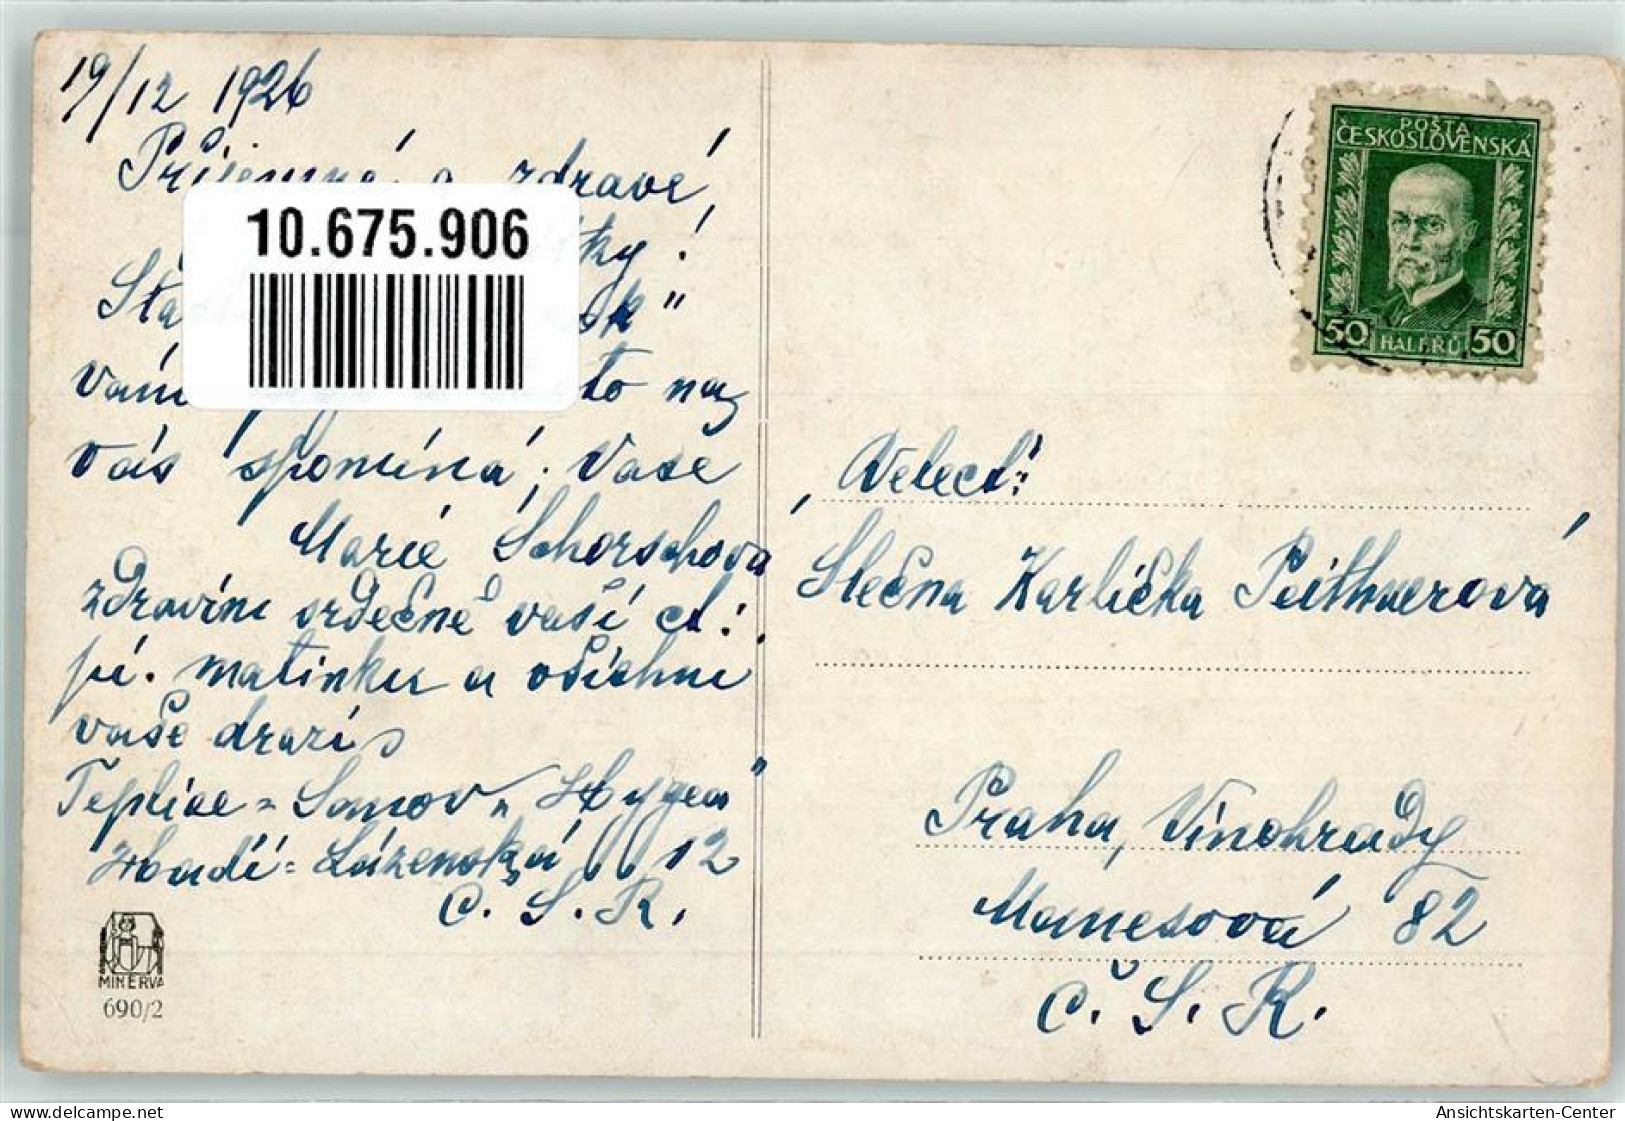 19/12 1926
Příjemné a zdravé
ky!
sk"
to na
vás spomíná. Vaše
Marie Schorschova
zdravím srdečně vaší ct:
pí. matinku a všichni
vaše drazí
Teplice = Šanov „Hygea"
Lázenská 12
C. S. R.
MINERVA
690/2
10.675.906
POŠTA
ČESKOSLOVENSKÁ
50 HALÉŘŮ 50
Velect:
Slečna Karlička Peithnerová
Praha, Vinohrady
Manesová 82
Č. S. R.
delcampe.net
Ansichtskarten-Center